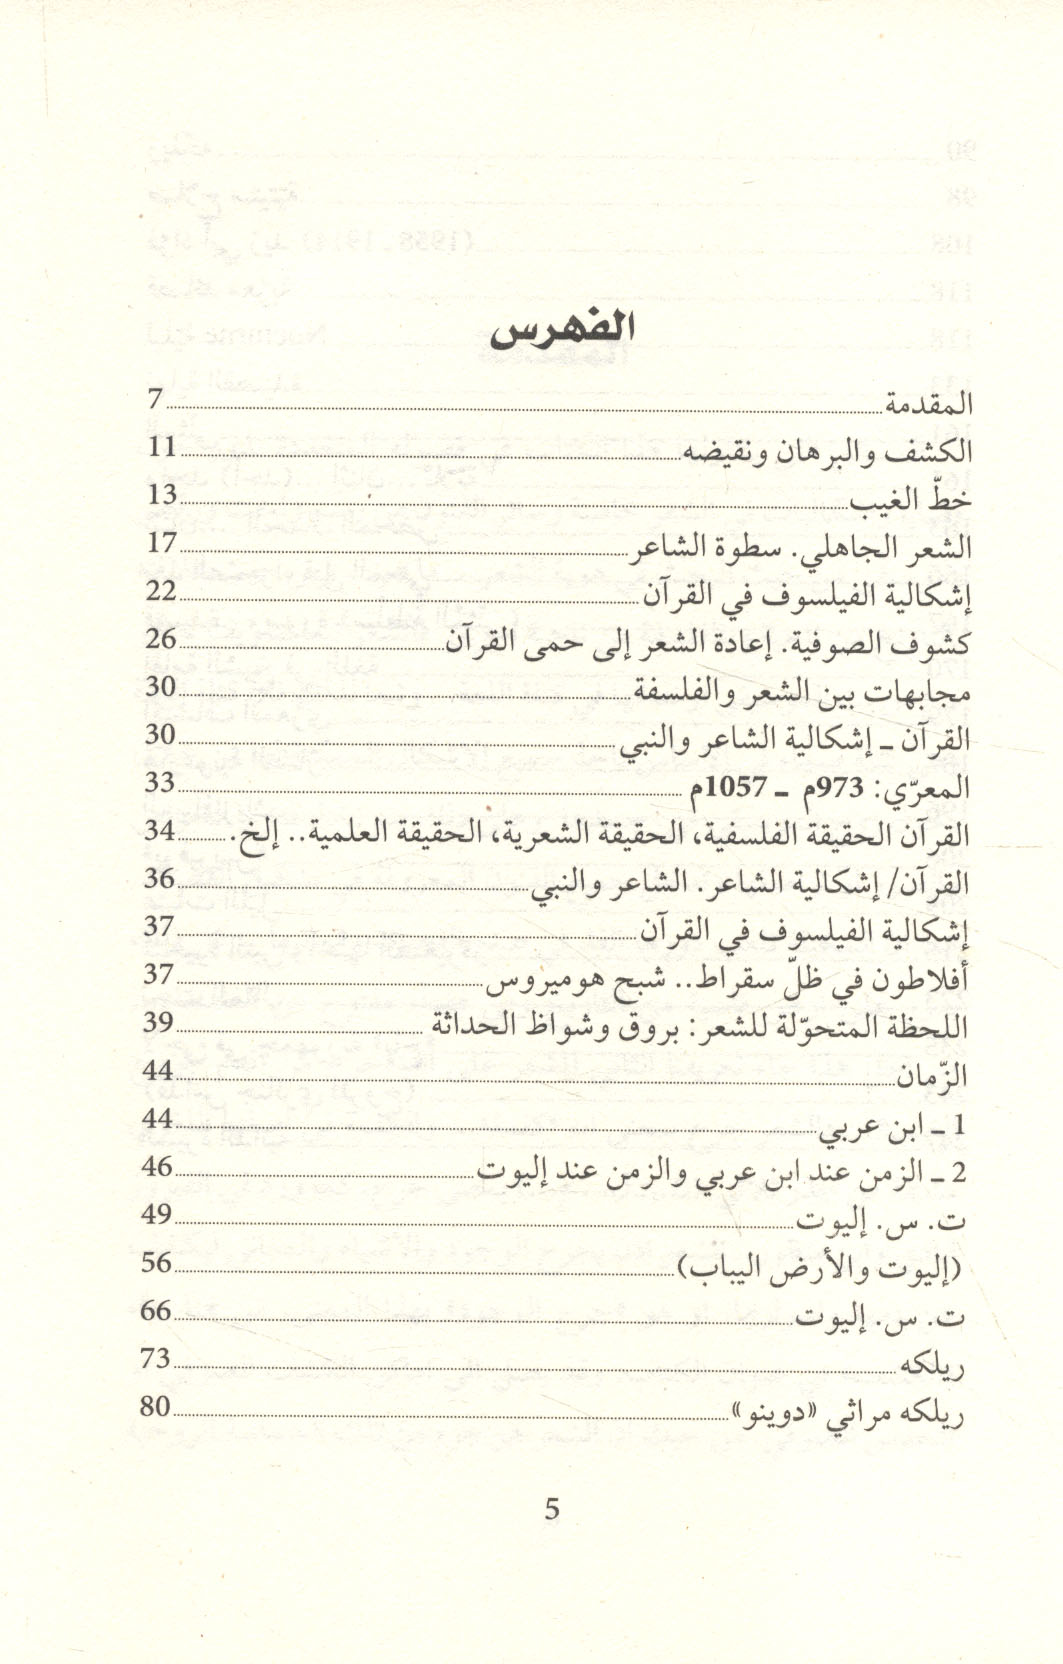 الفهرس
المقدمة 7
الكشف والبرهان ونقيضه 11
خطّ الغيب 13
الشعر الجاهلي. سطوة الشاعر 17
إشكالية الفيلسوف في القرآن 22
كشوف الصوفية. إعادة الشعر إلى حمى القرآن 26
مجابهات بين الشعر والفلسفة 30
القرآن ـ إشكالية الشاعر والنبي 30
المعرّي: 973م ـ 1057م 33
القرآن الحقيقة الفلسفية، الحقيقة الشعرية، الحقيقة العلمية.. إلخ. 34
القرآن/ إشكالية الشاعر. الشاعر والنبي 36
إشكالية الفيلسوف في القرآن 37
أفلاطون في ظلّ سقراط.. شبح هوميروس 37
اللحظة المتحوّلة للشعر: بروق وشواظ الحداثة 39
الزّمان 44
1 ـ ابن عربي 44
2 ـ الزمن عند ابن عربي والزمن عند إليوت 46
ت. س. إليوت 49
(إليوت والأرض اليباب) 56
ت. س. إليوت 66
ريلكه 73
ريلكه مراثي «دوينو» 80
5